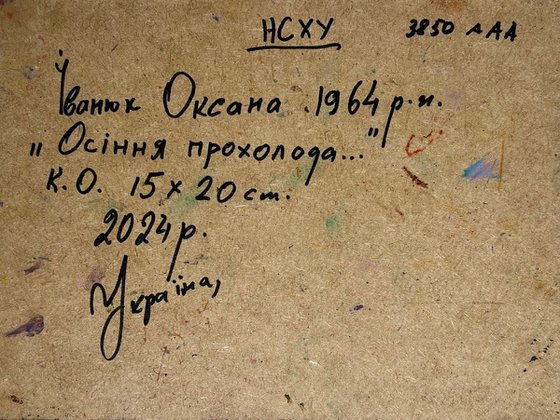 НСХУ 3850 лАА
Іванюк Оксана. 1964 р.н.
„Осіння прохолода..."
К.О. 15 х 20 ст.
2024 р.
Україна,